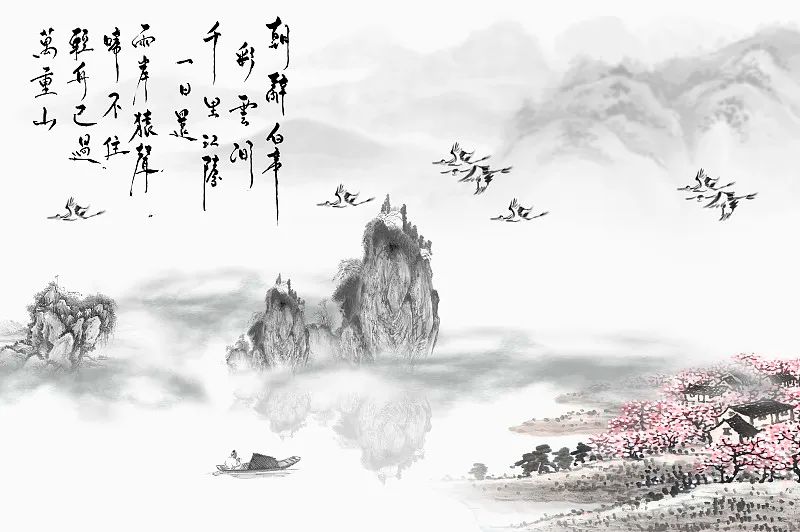 朝辭白帝
彩雲間
千里江陵
一日還
兩岸猿聲
啼不住
輕舟已過
萬重山